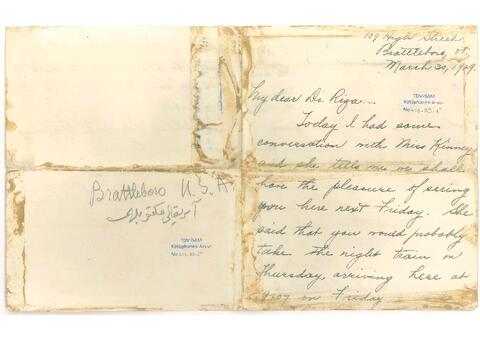 109 High Street
Brattleboro, Vt.
March 30, 1909.
My dear Dr. Riza:-
TDV/İSAM
Kütüphanesi Arşivi
Today I had some
conversation with Miss Kinney
and she tells me we shall
have the pleasure of seeing
you here next Friday. She
said that you would probably
take the night train on
Thursday, arriving here at
on Friday
Brattleboro U.S.A
TDV/İSAM
Kütüphanesi Arşivi